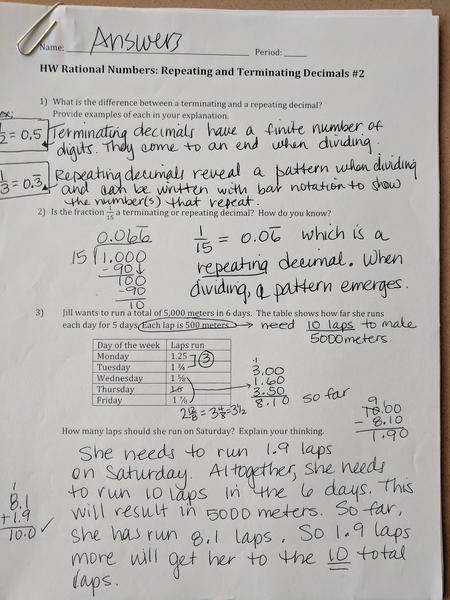 Name: Answers Period:
HW Rational Numbers: Repeating and Terminating Decimals #2
1) What is the difference between a terminating and a repeating decimal?
Provide examples of each in your explanation.
ex:
1/2 = 0.5
Terminating decimals have a finite number of
digits. They come to an end when dividing.
1/3 = 0.3̅
Repeating decimals reveal a pattern when dividing
and can be written with bar notation to show
the number(s) that repeat.
2) Is the fraction 1/15 a terminating or repeating decimal? How do you know?
0.066̅
15 1.000
-90
100
-90
10
1/15 = 0.06̅ which is a
repeating decimal. When
dividing, a pattern emerges.
3) Jill wants to run a total of 5,000 meters in 6 days. The table shows how far she runs
each day for 5 days. Each lap is 500 meters. → need 10 laps to make
5000 meters.
Day of the week Laps run
Monday 1.25
Tuesday 1 3/4
3
Wednesday 1 5/8
Thursday 1.6
Friday 1 7/8
2 12/8 = 3 4/8 = 3 1/2
1
3.00
1.60
3.50
8.10 so far
9
10.00
- 8.10
1.90
How many laps should she run on Saturday? Explain your thinking.
She needs to run 1.9 laps
on Saturday. Altogether, she needs
to run 10 laps in the 6 days. This
will result in 5000 meters. So far,
she has run 8.1 laps. So 1.9 laps
more will get her to the 10 total
laps.
1
8.1
+1.9
10.0 ✓